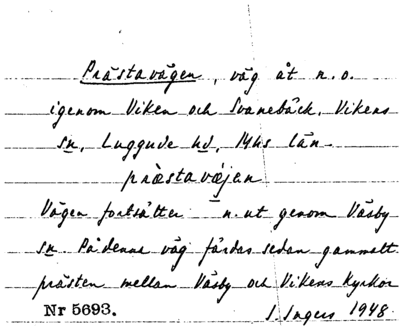 Prästavägen, väg åt n.o.
igenom Viken och Svanebäck, Vikens
sn, Luggude hd, Mhs län.
præstavæjan
Vägen fortsätter n. ut genom Väsby
sn. På denna väg färdas sedan gammalt
prästen mellan Väsby och Vikens kyrkor
Nr 5693.
I. Ingers 1948.